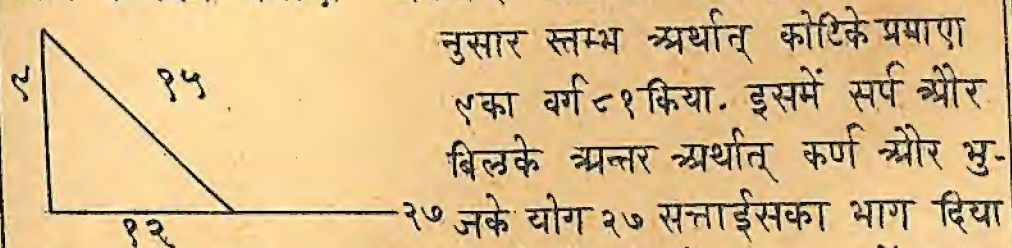 नुसार स्तम्भ अर्थात् कोटिके प्रमाण
९ १५
९का वर्ग ८१ किया. इसमें सर्प और
बिलके अन्तर अर्थात् कर्ण और भु-
२७ जके योग २७ सत्ताईसका भाग दिया
१२